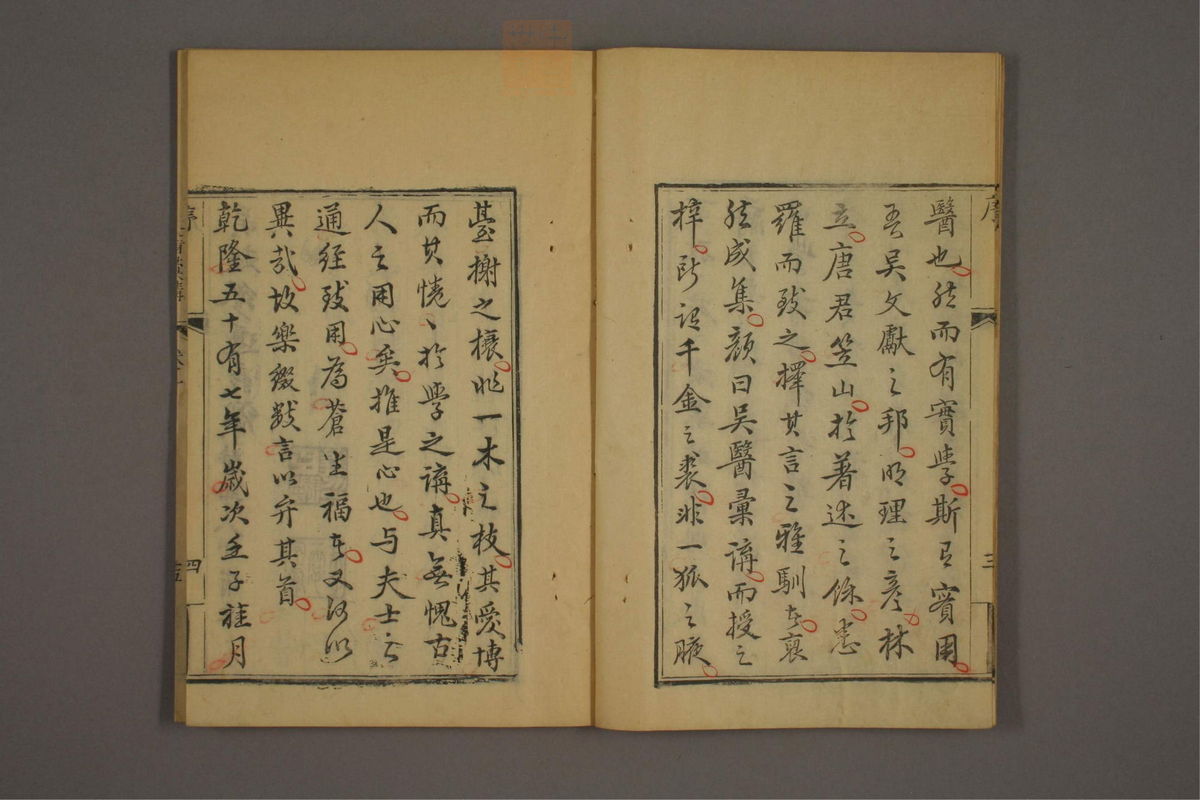 醫也然而有實學斯有實用
吾吳文獻之邦明理之彥林
立唐君笠山於著述之餘悉
羅而致之擇其言之雅馴者裒
然成集顏曰吳醫彙講而授之
梓所謂千金之裘非一狐之腋
臺榭之榱非一木之枝其愛博
而其惓〻於學之講真無愧古
人之用心矣推是心也与夫士之
通經致用為蒼生福者又何以
異哉故樂綴數言以弁其首
乾隆五十有七年歲次壬子秋月
序
三
序
四